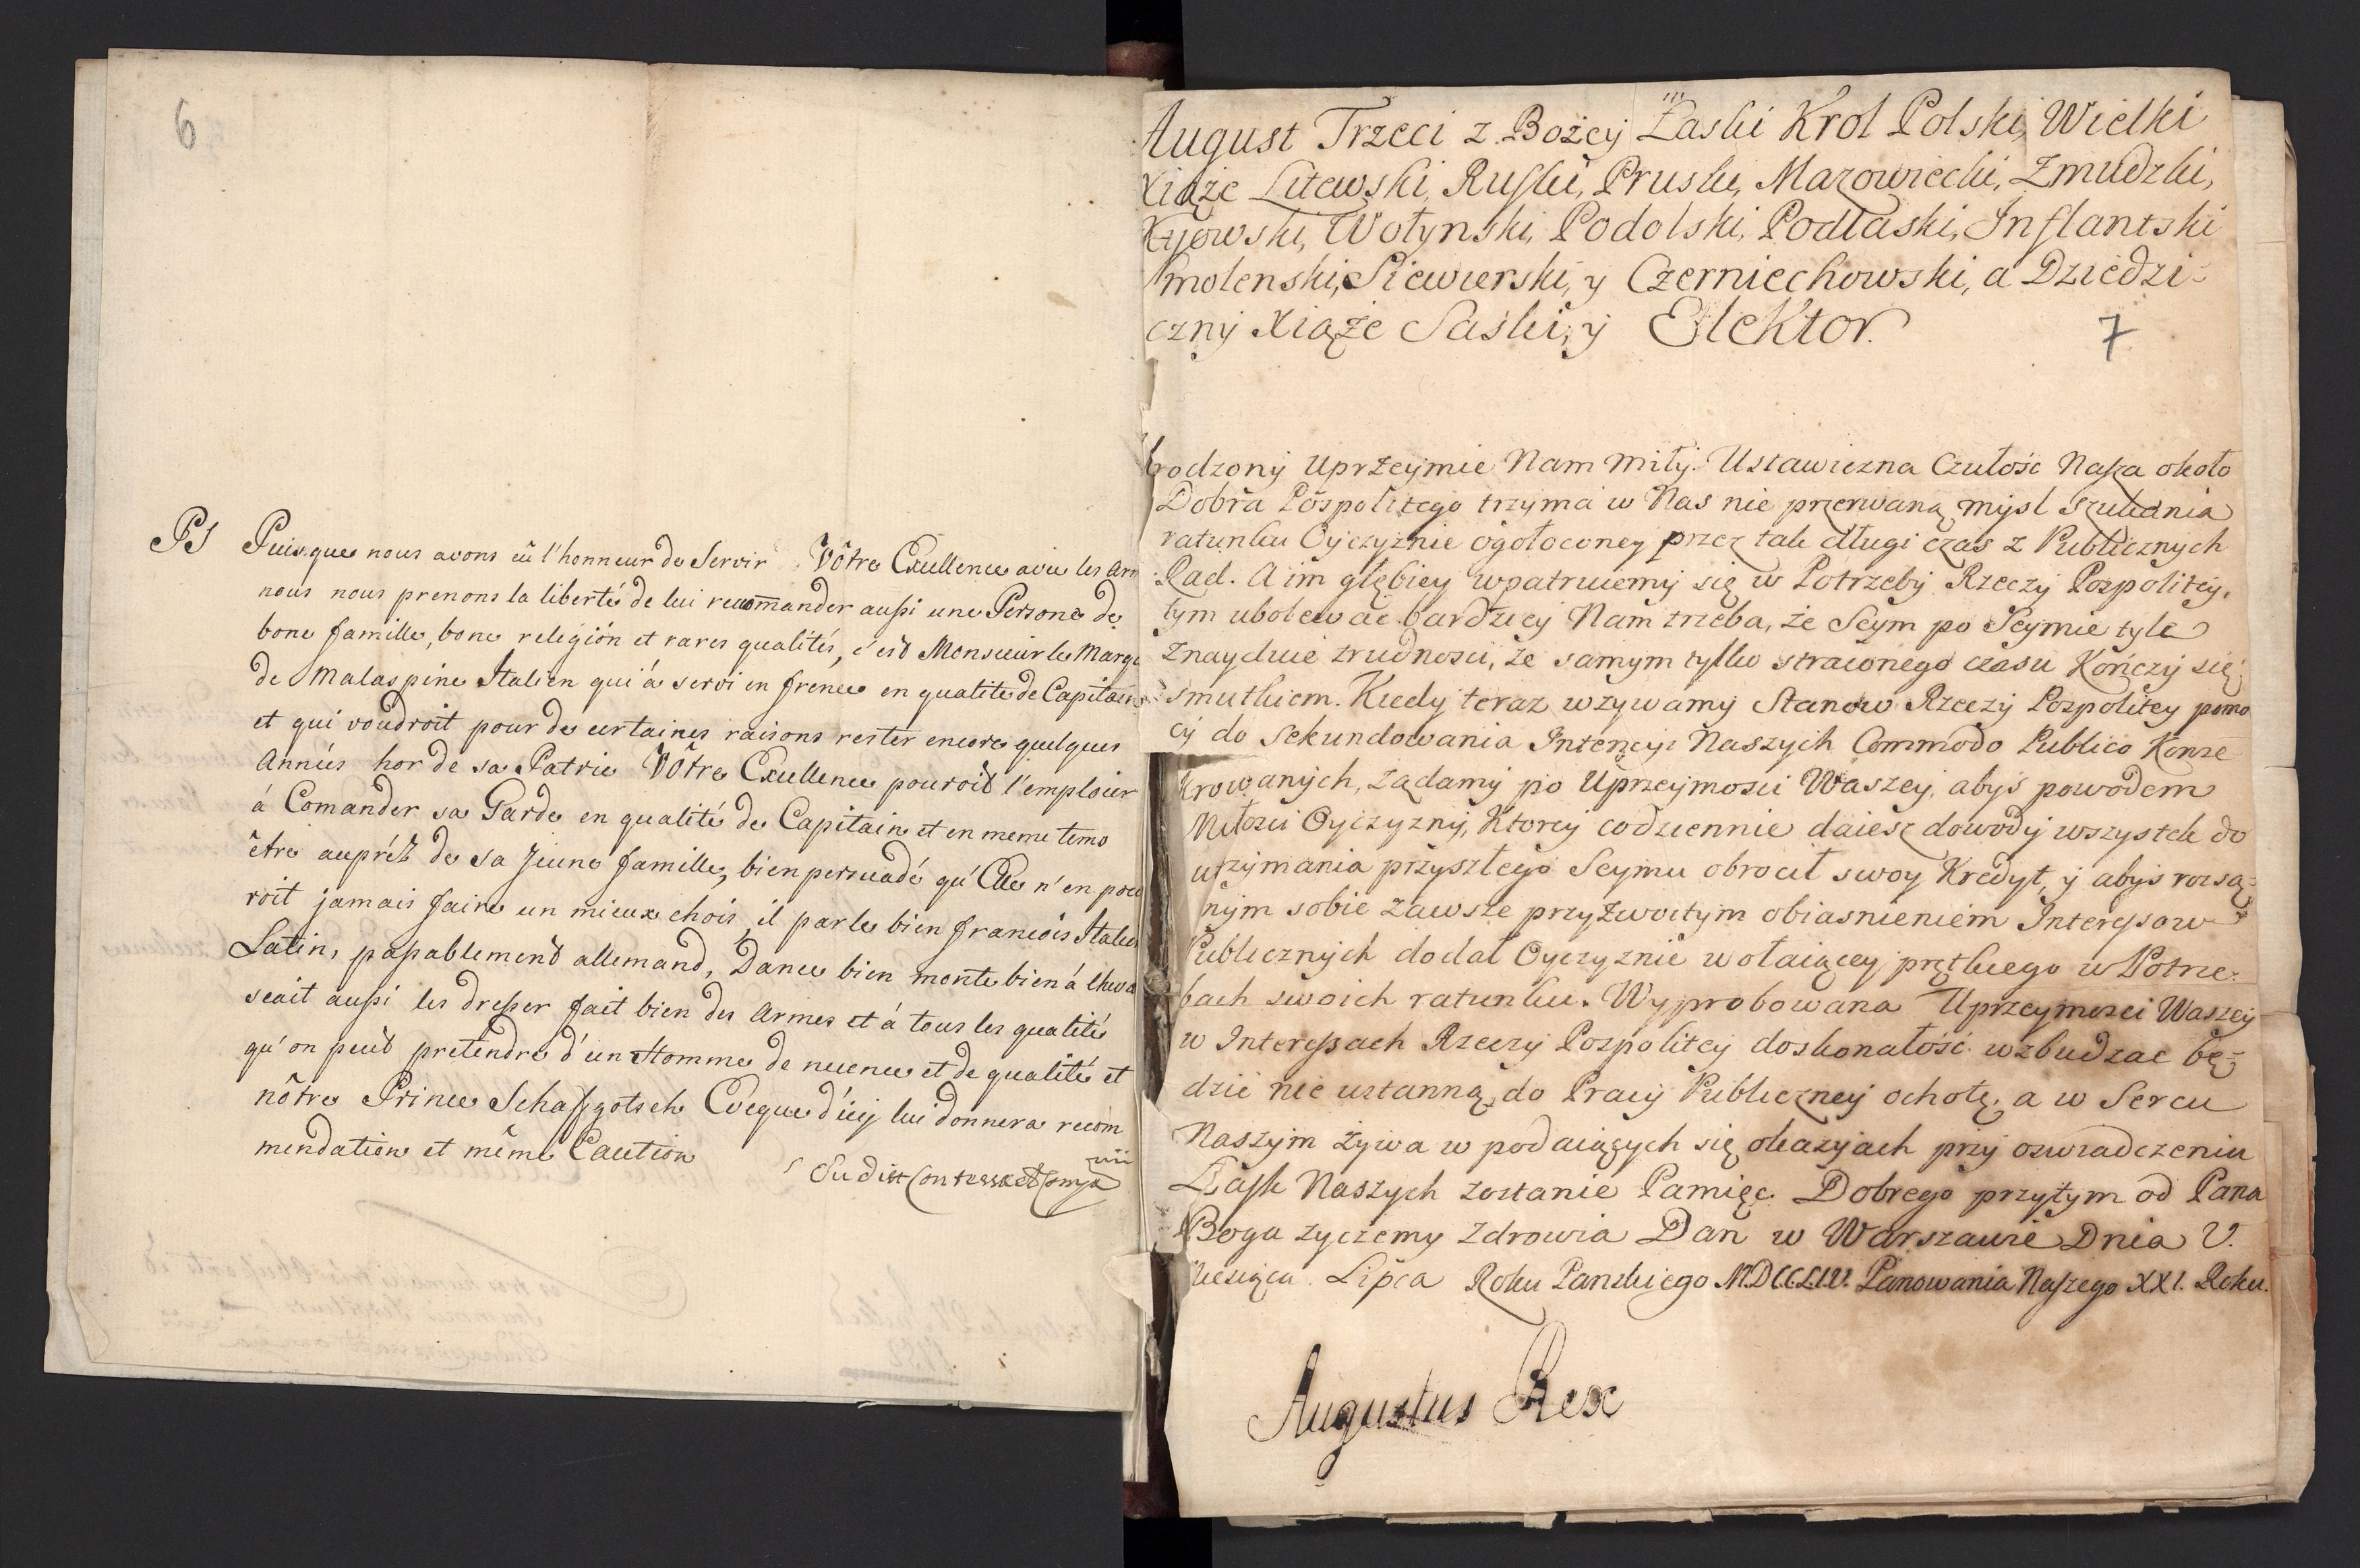 6
PS Puisque nous avons eû l'honneur de Servir Vôtre Excellence avec les Arm
nous nous prenons la liberté de lui recommander aussi une Persone de
bone famille, bone religión et rares qualités, c'est Monsieur le Marqu
de Malaspine Italien qui á servi en frence en qualité de Capitain
et qui voudroit pour de certaines raisons rester encore quelques
Années hor de sa Patrie Vôtre Excellence pouroit l'emploier
á Comander sa Garde en qualité de Capitaine et en meme tems
être auprét de sa Jeune famille, bien persuadé qu'Elle n'en pou
roit jamais faire un mieux chois, il parle bien francois Italien
Latin, passablement allemand, Dance bien monte bien á Cheva
scait aussi les dresser fait bien des Armes et á tous les qualités
qu'on peut pretendre d'un Homme de et de qualité et
nôtre Prince Schafgotsch Eveque d'icy lui donnera recom
mendation et même Caution
Sudist Contessa et Comp
7
August Trzeci z Bożey Łaski Krol Polski, Wielki
Xiąże Litewski, Ruski, Pruski, Mazowiecki, Zmudzki,
Kyiowski, Wołynski, Podolski, Podlaski, Inflantski
Smolenski, Siewierski, y Czerniechowski, a Dziedzi-
czny Xiąże Saski, y Elektor.
Urodzony Uprzeymie Nam Miły. Ustawiczna Czułośc Nasza około
Dobra Pospolitego trzyma w Nas nie przerwaną mysl szukania
ratunku Oyczyznie ogołoconey przez tak długi czas z Publicznych
Rad. A im głębiey wpatruiemy się w Potrzeby Rzeczy Pospolitey,
tym ubolewac bardziey Nam trzeba, że Seym po Seymie tyle
Znayduie trudnosci, że samym tylko straconego czasu Kończy się
smutkiem. Kiedy teraz wzywamy Stanow Rzeczy Pospolitey pomo
cy do Sekundowania Intencyi Naszych Commodo Publico Konse
krowanych, żądamy po Uprzeymosci Waszey, abyś powodem
Miłosci Oyczyzny, Ktorey codziennie daiesz dowody wszystek do
utrzymania przyszłego Seymu obrocił swoy Kredyt, y abyś rozsą-
nym sobie zawsze przyzwoitym obiasnieniem Interessow
Publicznych dodał Oyczyznie wołaiącey prętkiego w Potrze-
bach swoich ratunku. Wyprobowana Uprzeymosci Waszey
w Interessach Rzeczy Pospolitey doskonałość wzbudzac bę-
dzie nie ustanną do Pracy Publiczney ochotę, a w Sercu
Naszym żywa w podaiących się okazyiach przy oswiadczeniu
Łask Naszych zostanie Pamięc. Dobrego przytym od Pana
Boga życzemy Zdrowia Dan w Warszawie Dnia V.
Miesiąca Lipca Roku Panskiego MDCCLIV. Panowania Naszego XXI. Roku.
Augustus Rex